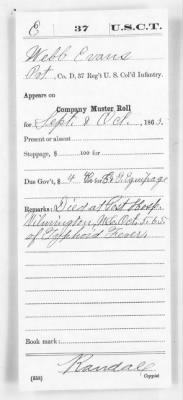 E 37 U.S.C.T.
Webb Evans
Pvt., Co. D, 37 Reg't U. S. Col'd Infantry.
Appears on
Company Muster Roll
for Sept & Oct, 1865.
Present or absent
Stoppage, $ 100 for
Due Gov't, $ 4 100 for C & G Equipage
Remarks: Died at Post Hosp.
Wilmington, N.C. Oct. 5, 65
of Typhoid Fever.
Book mark:
Randall
(358) Copyist